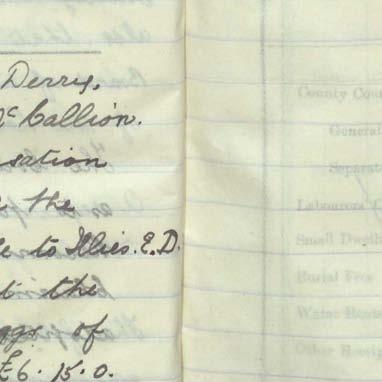 Derry,
McCallion.
sation
the
le to Illies. E.D.
t the
ggs of
£6. 15. 0.
County Cou
General
Separat
Labourers' C
Small Dwelli
Burial Fees
Water Rents
Other Receipt